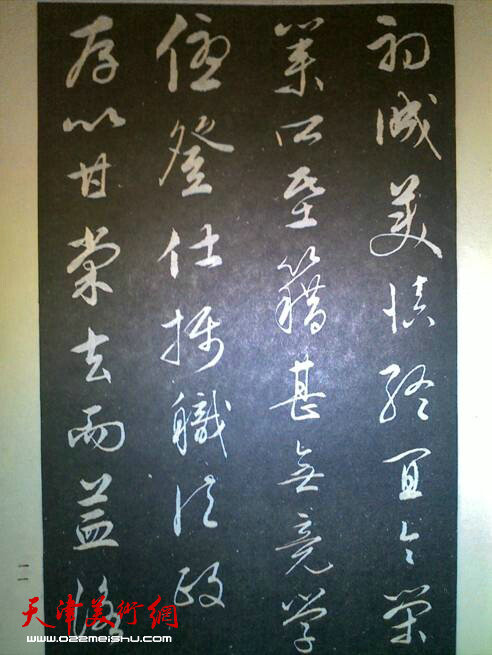 初誠美慎終宜令榮
業所基籍甚無竟學
優登仕攝職從政
存以甘棠去而益詠
天津美術網
www.022meishu.com